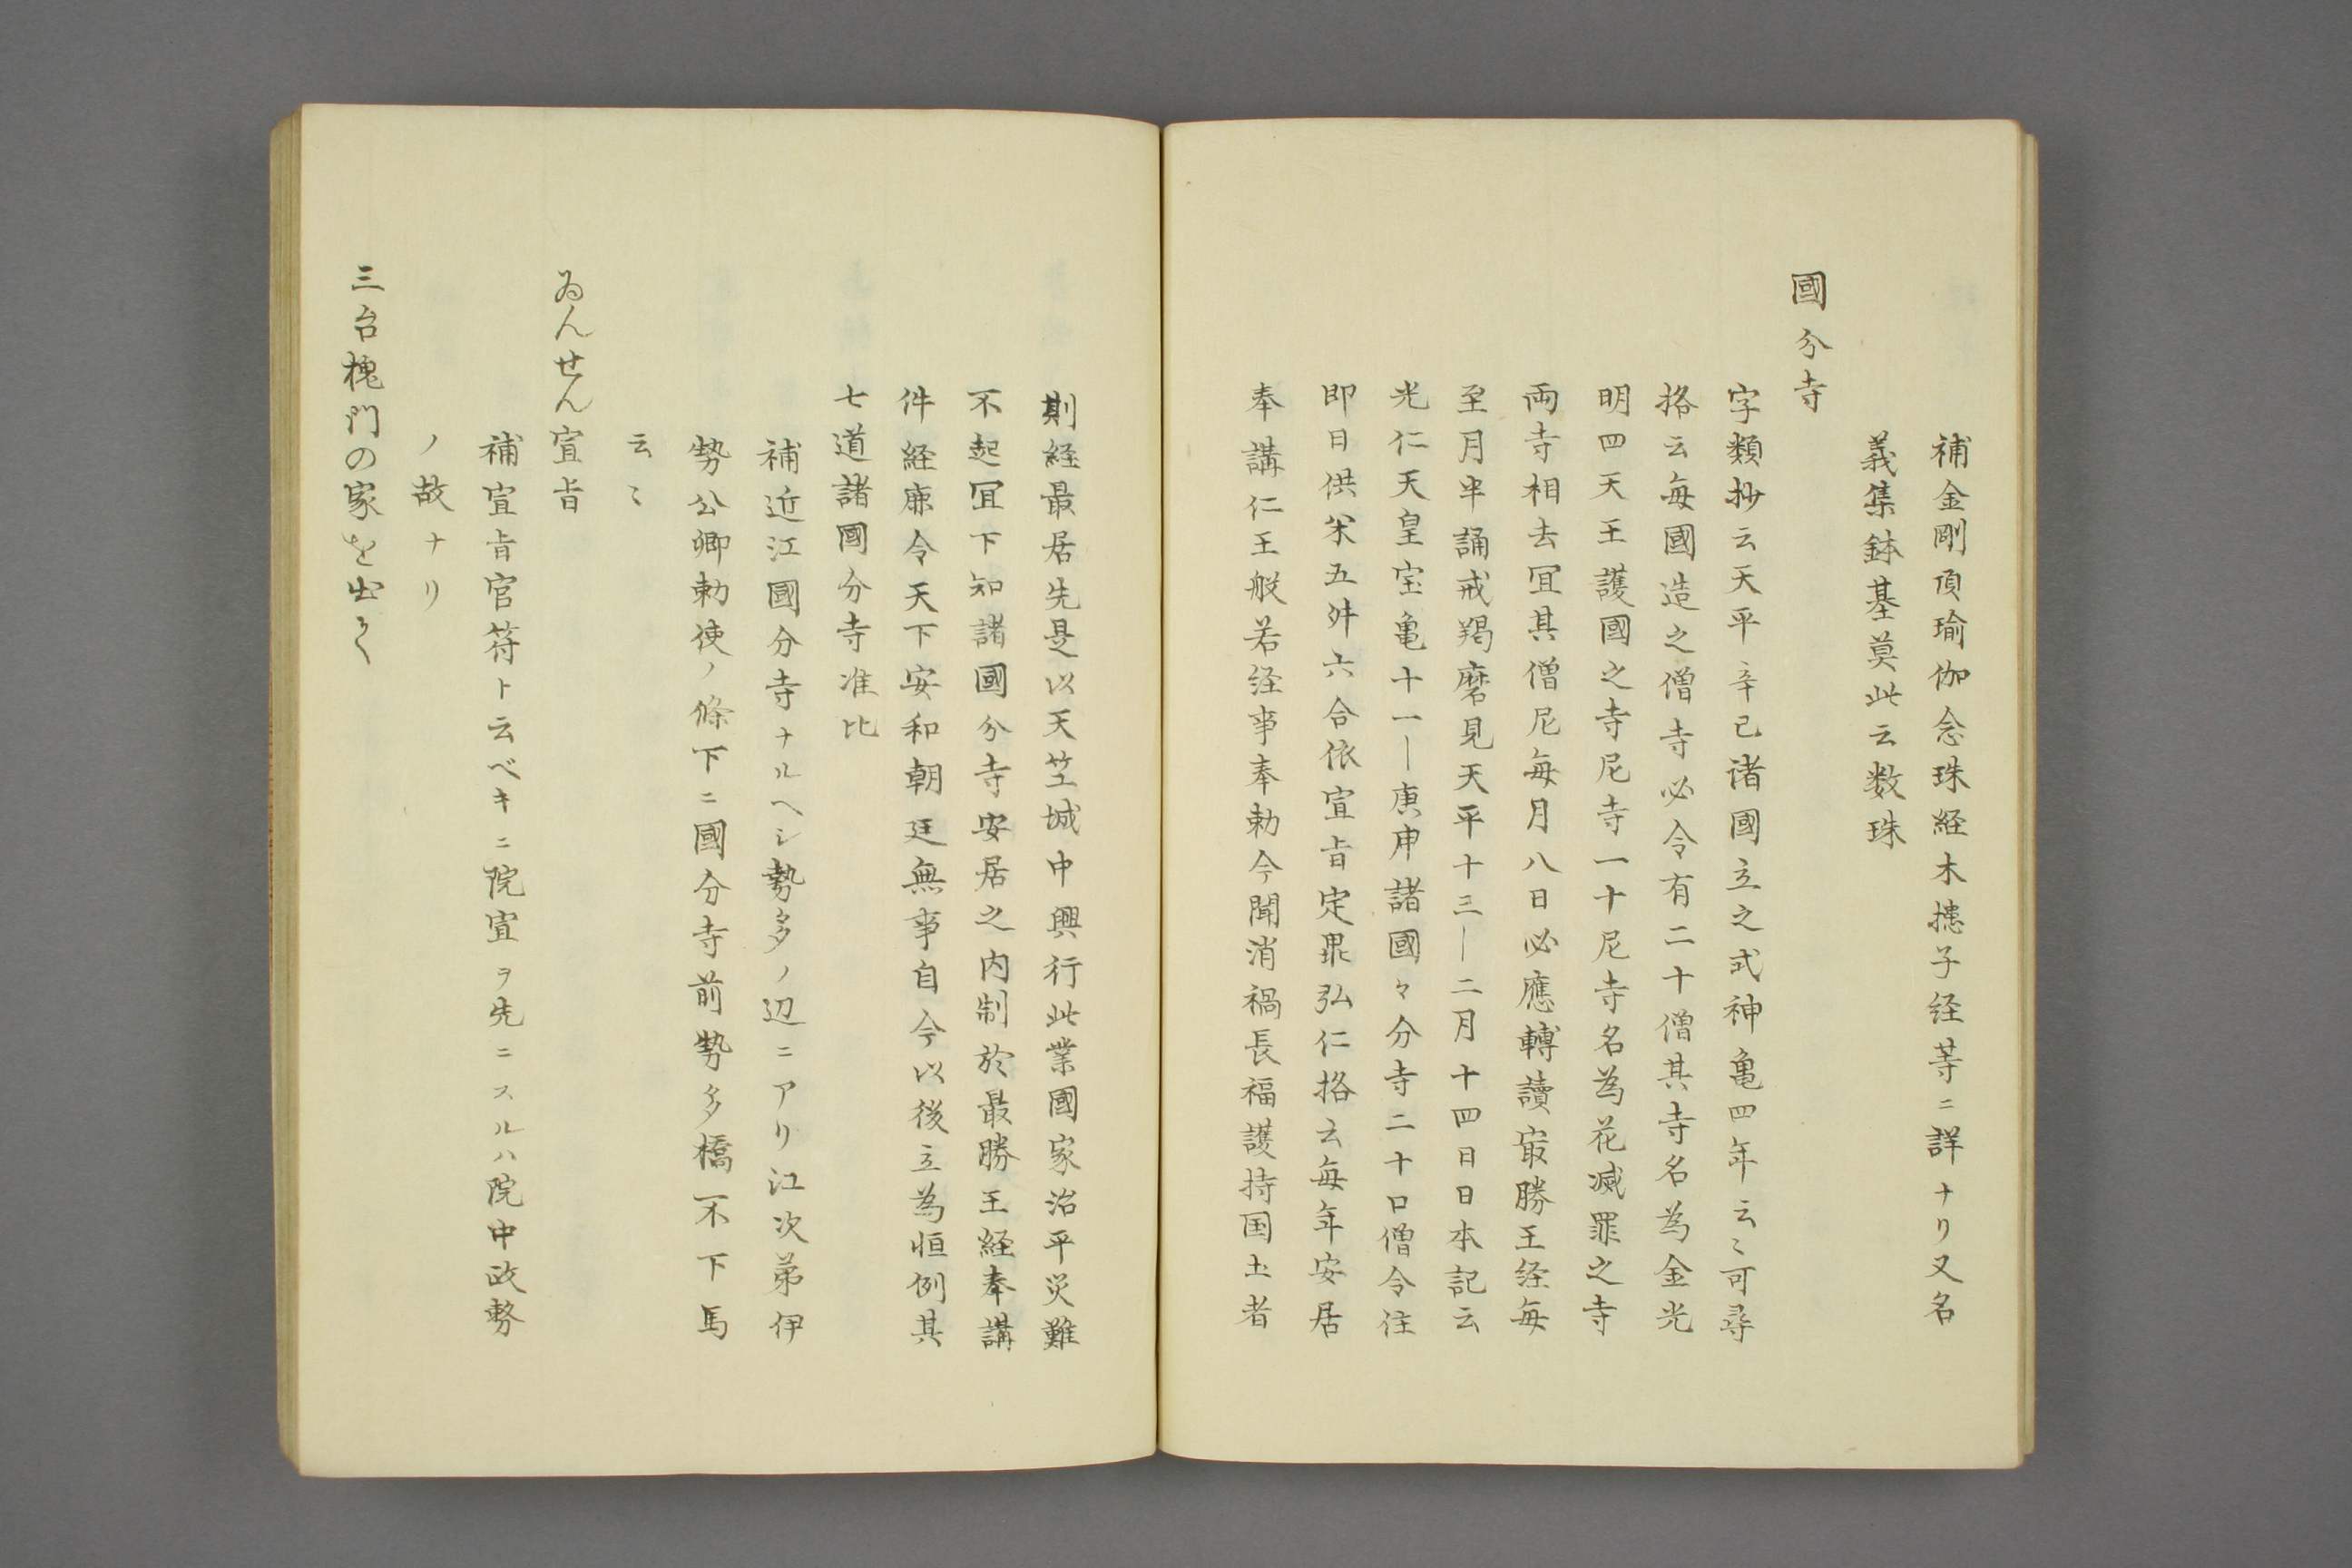 補金剛頂瑜伽念珠経木槵子経等ニ詳ナリ又名
義集鉢基莫此云数珠
國分寺
字類抄云天平辛已诸國立之式神亀四年云〻可尋
格云毎國造之僧寺必令有二十僧其寺名為金光
明四天王護國之寺尼寺一十尼寺名為花滅罪之寺
両寺相去冝其僧尼毎月八日必應轉讀㝡勝王経毎
至月半誦戒羯磨見天平十三―二月十四日日本記云
光仁天皇宝亀十一―庚申諸國々分寺二十口僧令住
即日供米五舛六合依宣旨定畢弘仁格云毎年安居
奉講仁王般若経事奉勅今聞消禍長福護持国土者
則経最居先是以天笁城中興行此業國家治平災難
不起冝下知諸國分寺安居之内制於最勝王経奉講
件経庶令天下安和朝廷無事自今以後立為恒例其
七道諸國分寺准比
補近江國分寺ナルヘシ勢多ノ辺ニアリ江次第伊
勢公卿勅使ノ條下ニ國分寺前勢多橋不下馬
云〻
ゐんせん宣旨
補宣旨官符ト云ベキニ院宣ヲ先ニスルハ院中政務
ノ故ナリ
三台槐門の家を出て